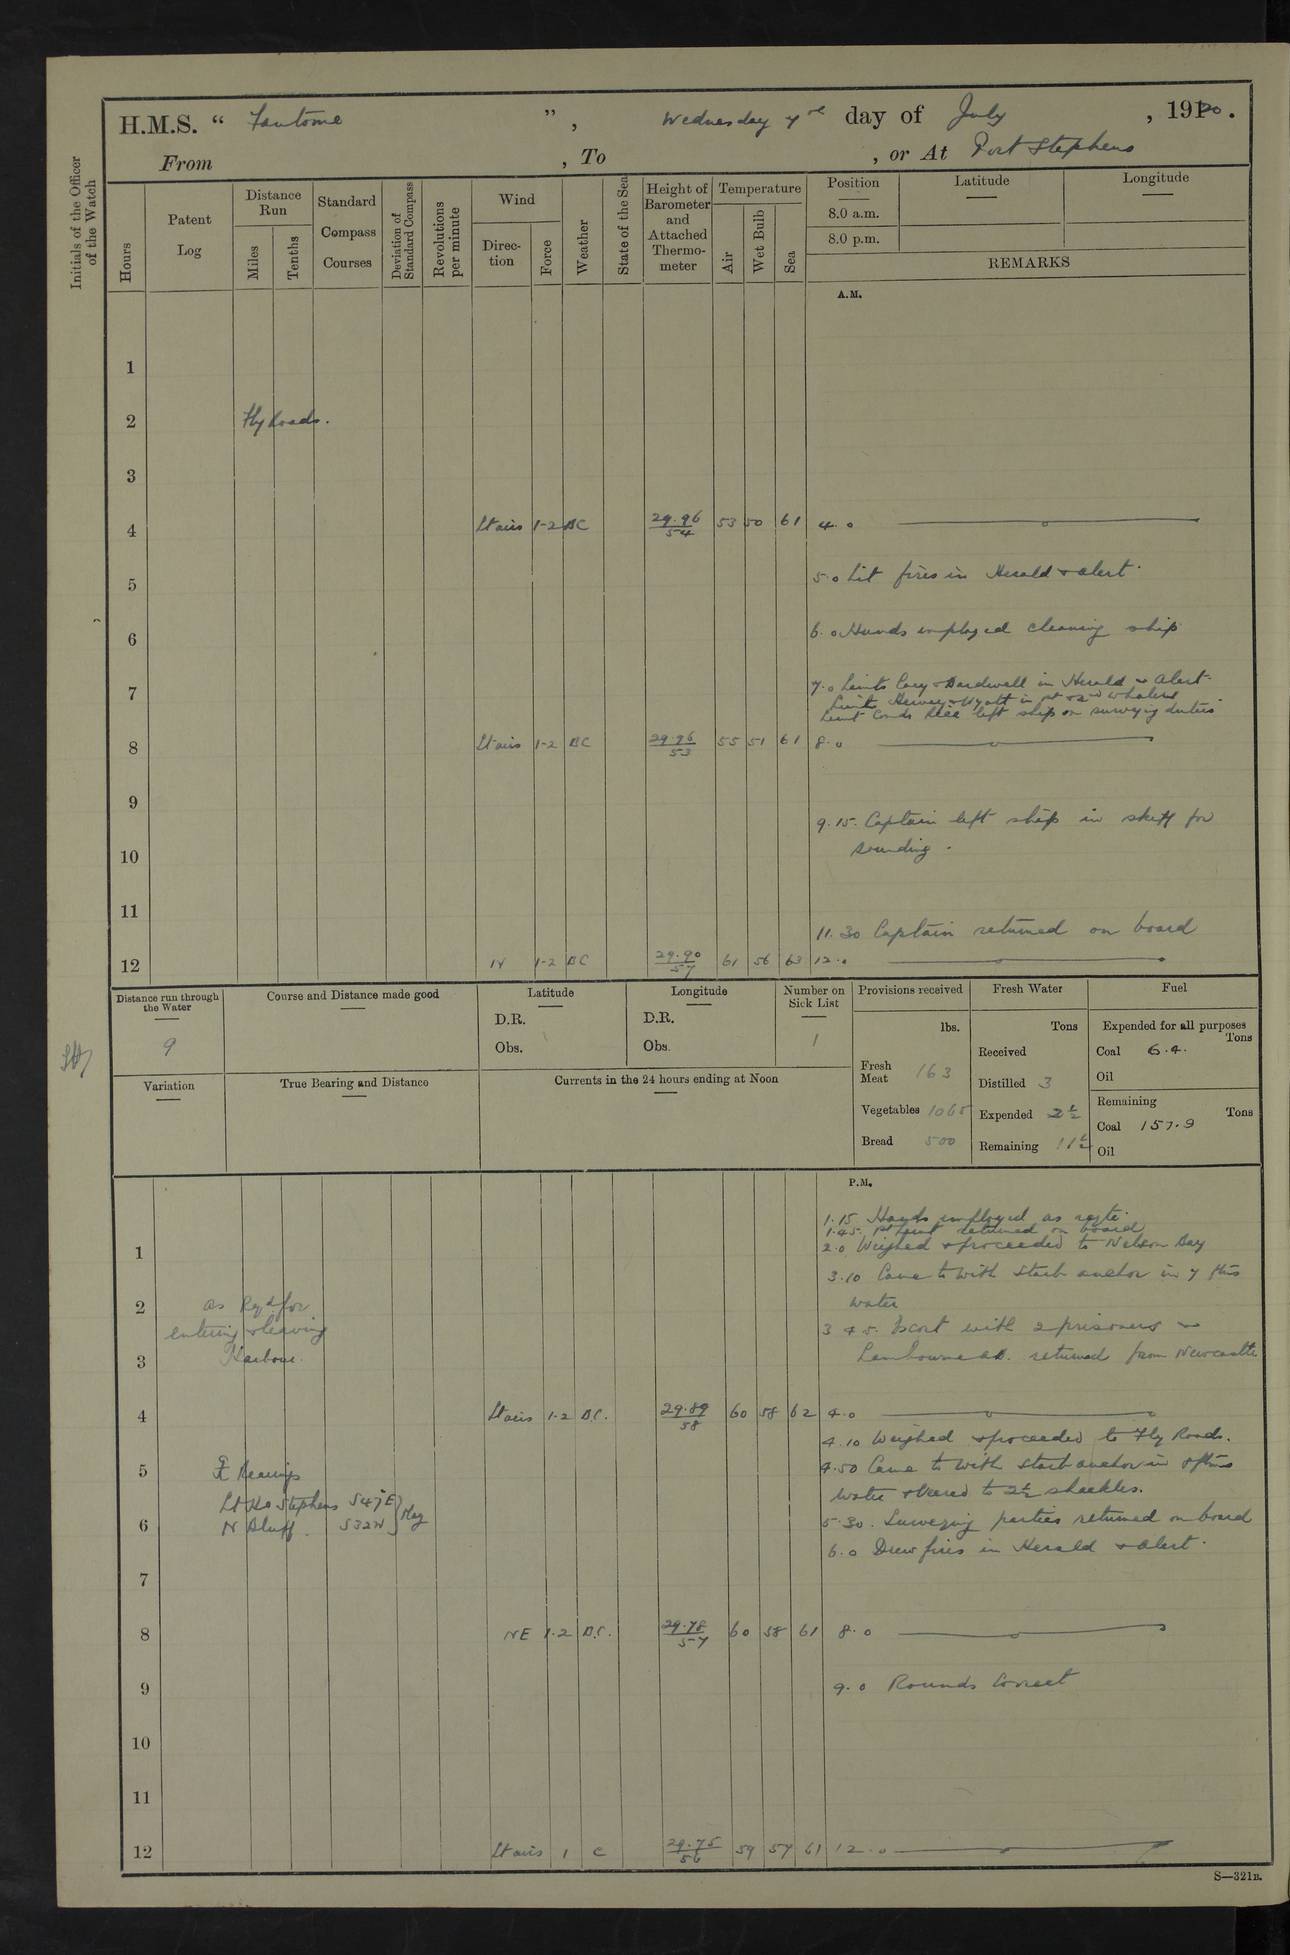 H.M.S. “ Fantome ”, Wednesday 7th day of July, 1920.
From , To , or At Port Stephens
Initials of the Officer of the Watch
Hours
Patent Log
Distance Run
Miles
Tenths
Standard Compass Courses
Deviation of Standard Compass
Revolutions per minute
Wind
Direction
Force
Weather
State of the Sea
Height of Barometer and Attached Thermometer
Temperature
Air
Wet Bulb
Sea
Position
8.0 a.m.
8.0 p.m.
Latitude
Longitude
REMARKS
A.M.
1
2 Fly Roads.
3
4 Lt airs 1-2 BC 29.96 54 53 50 61 4.0
5 5.0 Lit fires in Herald & Alert.
6 6.0 Hands employed cleaning ship
7 7.0 Lieuts Cary & Bardwell in Herald & Alert.
Lieuts Hervey & Wyatt in 1st & 2nd Whalers
left ship on surveying duties
8 Lt airs 1-2 BC 29.96 53 55 51 61 8.0
9
9.15. Captain left ship in skiff for
10 sounding.
11
11.30 Captain returned on board
12 N 1-2 BC 29.90 57 61 56 63 12.0
Distance run through the Water
9
Course and Distance made good
Latitude
D.R.
Obs.
Longitude
D.R.
Obs.
Number on Sick List
1
Provisions received
lbs.
Fresh Meat 163
Vegetables 1065
Bread 500
Fresh Water
Tons
Received
Distilled 3
Expended 2½
Remaining 11½
Fuel
Expended for all purposes
Tons
Coal 6.4.
Oil
Remaining
Tons
Coal 157.9
Oil
Variation
True Bearing and Distance
Currents in the 24 hours ending at Noon
P.M.
1.15 Hands employed as reqte.
1.45. 1st returned on board
1 2.0 Weighed & proceeded to Nelson Bay
3.10 Came to with Starb anchor in 7 fms
2 as Reqd for water
entering & leaving 3.45. Escort with 2 prisoners &
3 Harbour. Lambourne AB. returned from Newcastle
4 Lt airs 1-2 B.C. 29.89 58 60 58 62 4.0
4.10 Weighed & proceeded to Fly Roads.
5 Bearings 4.50 Came to with Starb anchor in 8 fms
Lt Ho Stephens S47E water & veered to 2½ shackles.
6 N Bluff S32W } Mag 5.30. Surveying parties returned on board
6.0 Drew fires in Herald & Alert.
7
8 NE 1.2 B.C. 29.78 57 60 58 61 8.0
9 9.0 Rounds Correct
10
11
12 Lt airs 1 C 29.75 56 59 57 61 12.0
S—321B.